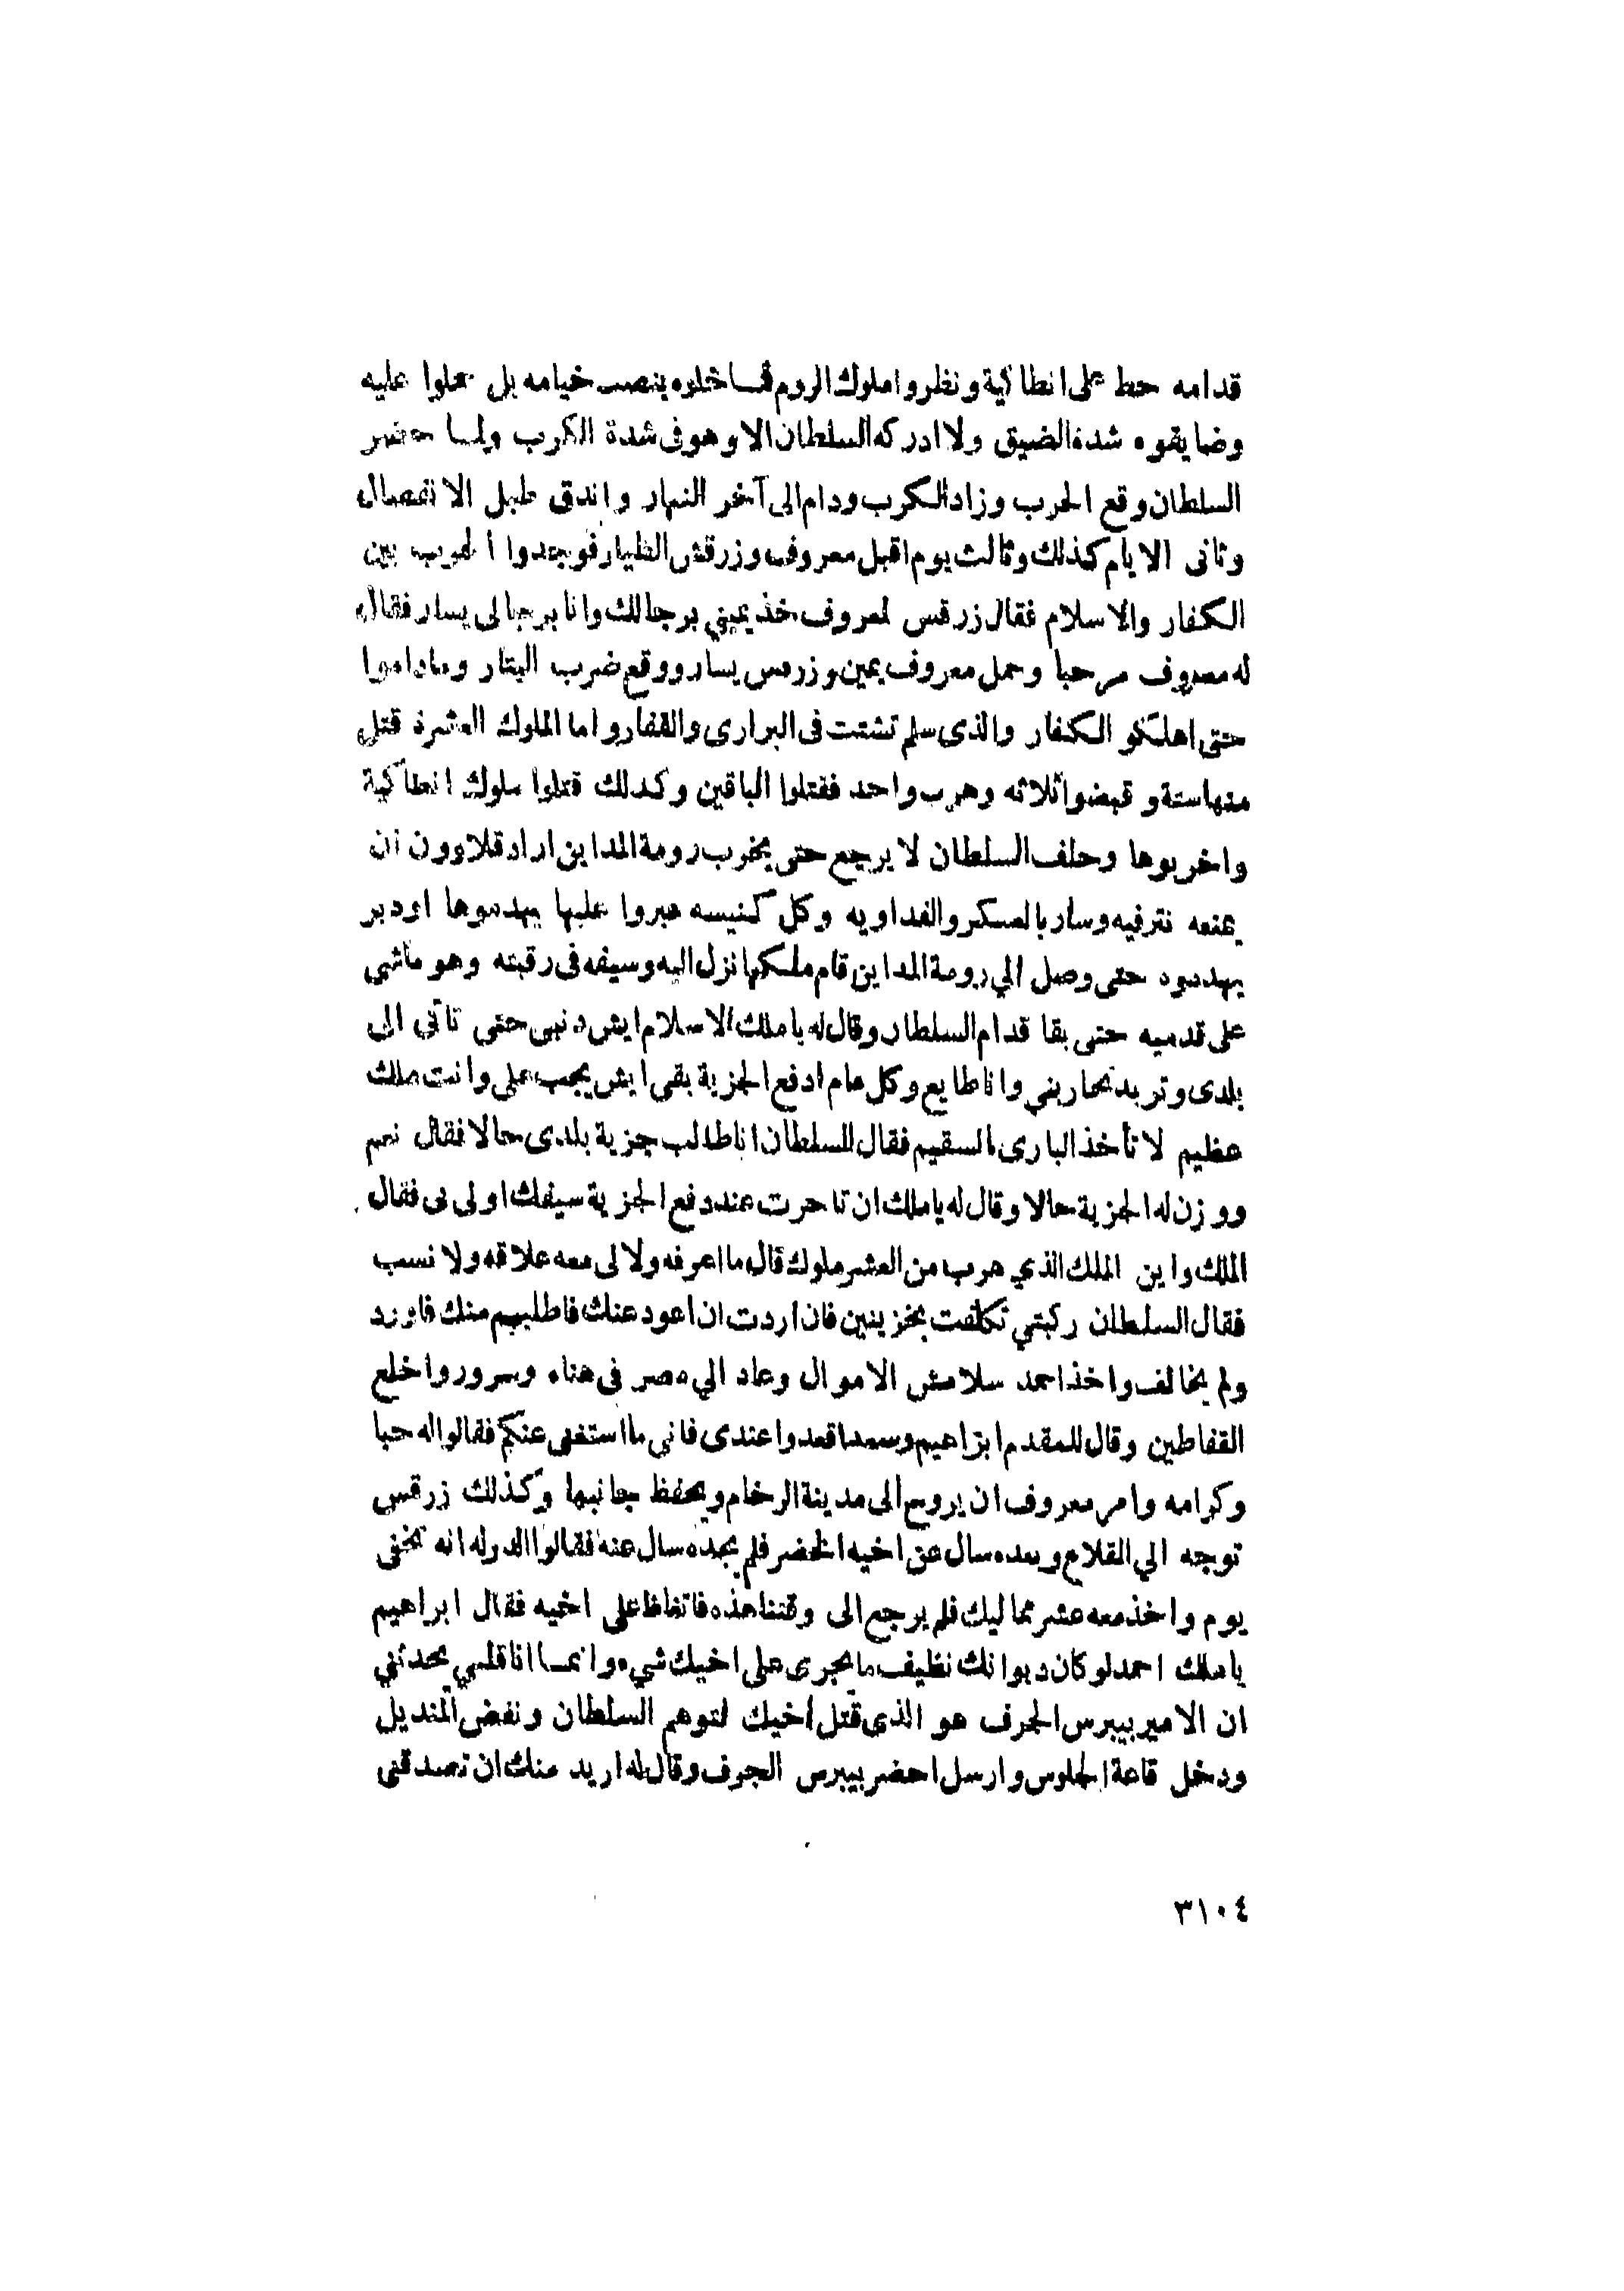 قدامه حط على انطاكية ونظروا ملوك الروم فما خلوه ينصب خيامه بل حملوا عليه
وضايقوه شدة الضيق ولا ادركه السلطان الا وهو فى شدة الكرب ولما حضر
السلطان وقع الحرب وزاد الكرب ودام الى آخر النهار واندق طبل الانفصال
وثانى الايام كذلك وثالث يوم اقبل معروف وزرقش الطيار فوجدوا الحرب بين
الكفار والاسلام فقال زرقس لمعروف خذ يميني برجالك وانا برجالى يسار فقال
له معروف مرحبا وحمل معروف يمين وزرمس يسار ووقع ضرب البتار وماداموا
حتى اهلكو الكفار والذى سلم تشتت فى البرارى والقفار واما الملوك العشرة قتل
منها ستة وقبضوا ثلاثه وهرب واحد فقتلوا الباقين وكدلك قتلوا ملوك انطاكية
واخربوها وحلف السلطان لا يرجع حتى يخرب رومة المداين اراد قلاوون ان
يمنعه نترفيه وسار بالعسكر والفداويه وكل كنيسه عبروا عليها يهدموها او دير
يهدموه حتى وصل الي رومة المداين قام ملكها نزل اليه وسيفه فى رقبته وهو ماشى
على قدميه حتى بقا قدام السلطان وقال له يا ملك الاسلام ايش دنبى حتى تأتى الى
بلدى وتريد تحاربني وانا طايع وكل عام ادفع الجزية بقى ايش يجب على وانت ملك
عظيم لا تأخذ البارى بالسقيم فقال السلطان انا طالب جزية بلدى حالا فقال نعم
ووزن له الجزية حالا وقال له يا ملك ان تاخرت عند دفع الجزية سيفك اولى بى فقال
الملك واين الملك الذي هرب من العشر ملوك قال ما اعرفه ولا لى معه علاقه ولا نسب
فقال السلطان ركبتي تكلفت بخزينين فان اردت ان اعود عنك فاطلبهم منك فاورد
ولم يخالف واخذ احمد سلامش الاموال وعاد الي مصر فى هناء وسرور واخلع
القفاطين وقال للمقدم ابراهيم وسعد اقعدوا عندى فاني ما استغنى عنكم فقالوا له حبا
وكرامه وامر معروف ان يروح الى مدينة الرخام ويحفظ جانبها وكذلك زرقس
توجه الي القلاع وبعده سال عن اخيه الخضر فلم يجده سال عنه فقالوا الدوله انه تخفى
يوم واخذ معه عشر مماليك فلم يرجع الى وقتنا هذه فاتغاظ على اخيه فقال ابراهيم
يا ملك احمد لو كان ديوانك نظيف ما يجرى على اخيك شيء وانما انا قلبي يحدثني
ان الامير بيبرس الجرف هو الذى قتل أخيك لتوهم السلطان ونفض المنديل
ودخل قاعة الجلوس وارسل احضر بيبرس الجرف وقال له اريد منك ان تصدقنى
٣١٠٤